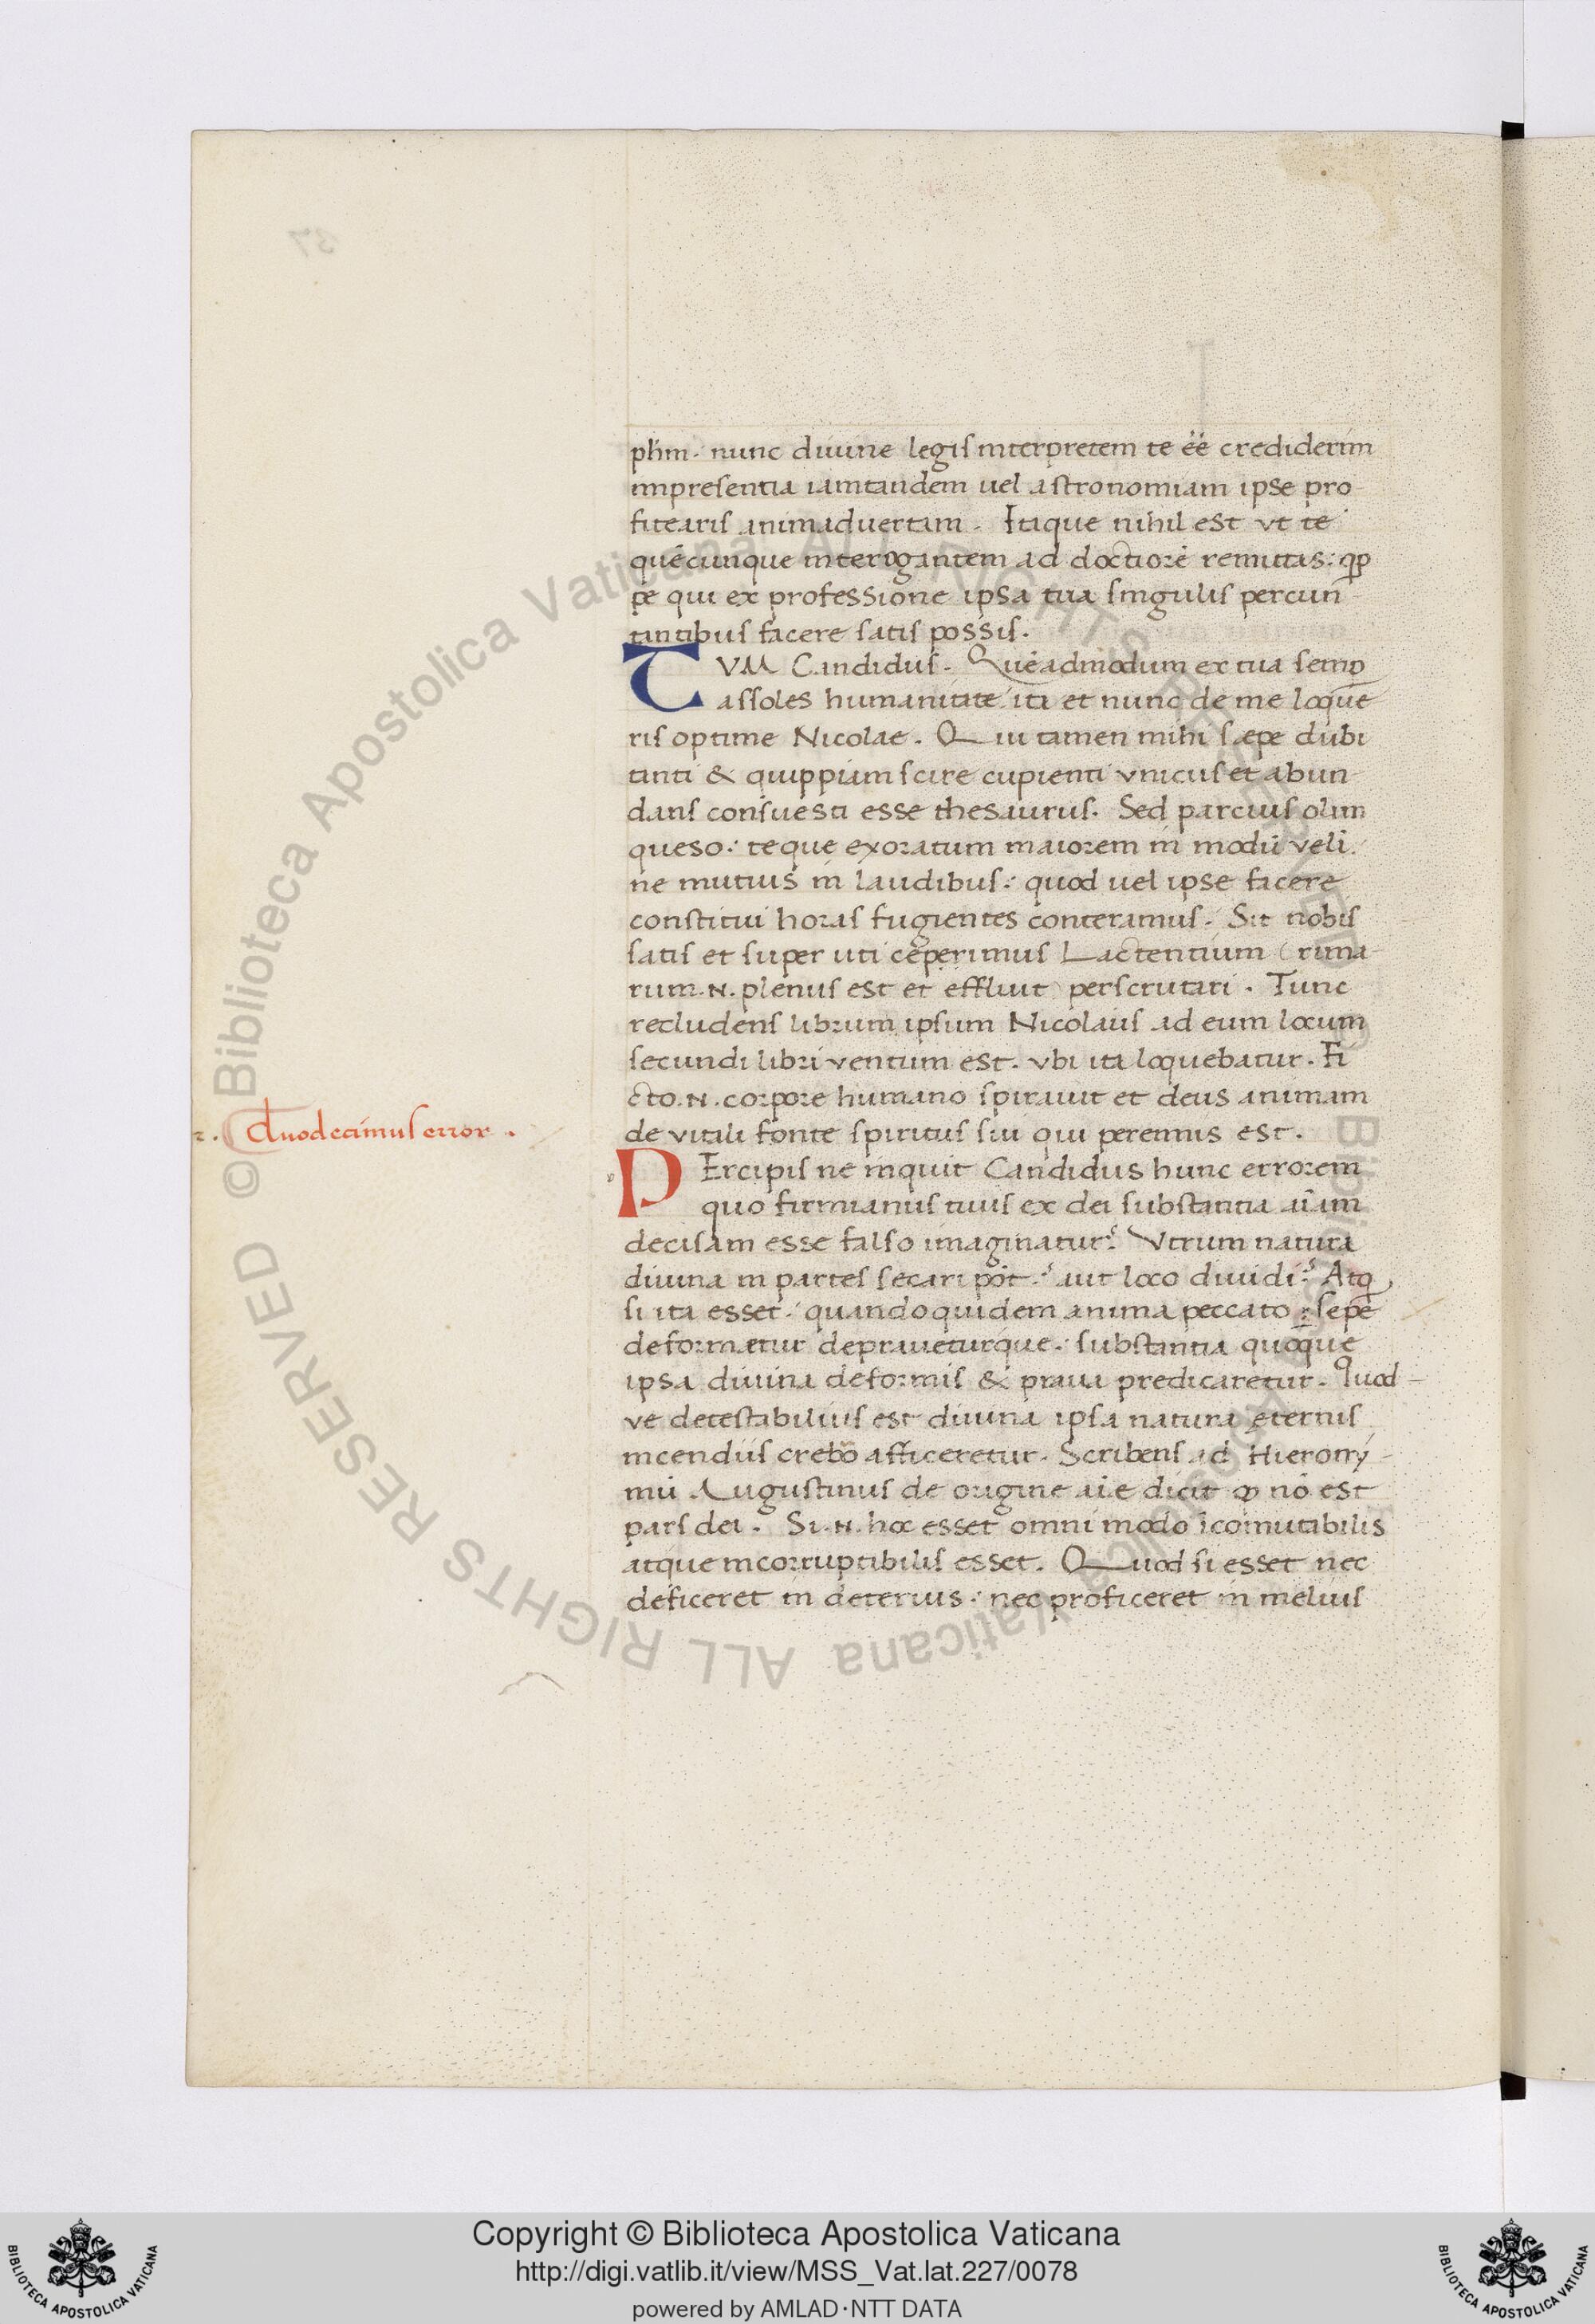 phm. nunc diuine legis interpretem te éé crediderim
impresentia iamtandem uel astronomiam ipse pro
fitearis animaduertam. Itaque nihil est vt te
quēcunque interogantem ad doctiorē remittas: qp
pe qui ex professione ipsa tua singulis percun-
tantibus facere satis possis.
TVM Candidus. Quēadmodum ex tua semp
assoles humanitate ita et nunc de me loque
ris optime Nicolae. Qui tamen mihi sæpe dubi
tanti & quippiam scire cupienti vnicus et abun-
dans consuesti esse thesaurus. Sed parcius olim
queso: teque exoratum maiorem in modū velī.
ne mutuis in laudibus: quod uel ipse facere
constitui horas fugientes conteramus. Sit nobis
satis et super uti cęperimus Lactentium (rima-
rum .N. plenus est et effluit) perscrutari. Tunc
recludens librum ipsum Nicolaus ad eum locum
secundi libri ventum est. vbi ita loquebatur. Fi
cto .N. corpore humano spirauit et deus animam
de vitali fonte spiritus sui qui perennis est.
duodecimus error.
PErcipis ne inquit Candidus hunc errorem
quo firmianus tuus ex dei substantia aīam
decisam esse falso imaginatur? Vtrum natura
diuina in partes secari pōt? aut loco diuidi? Atq
si ita esset: quandoquidem anima peccato sepe
deformetur depraueturque: substantia quoque
ipsa diuina deformis & praua predicaretur. Quod-
ve detestabilius est diuina ipsa natura ęternis
incendiis crebō afficeretur. Scribens ad Hierony-
mū Augustinus de origine aīe dicit ꝙ nō est
pars dei. Si .N. hoc esset omni modo īcomutabilis
atque incorruptibilis esset. Quod si esset nec
deficeret in deterius: nec proficeret in melius
Copyright © Biblioteca Apostolica Vaticana
http://digi.vatlib.it/view/MSS_Vat.lat.227/0078
powered by AMLAD·NTT DATA
BIBLIOTECA APOSTOLICA VATICANA
BIBLIOTECA APOSTOLICA VATICANA
© Biblioteca Apostolica Vaticana ALL RIGHTS RESERVED
© Biblioteca Apostolica Vaticana ALL RIGHTS RESERVED